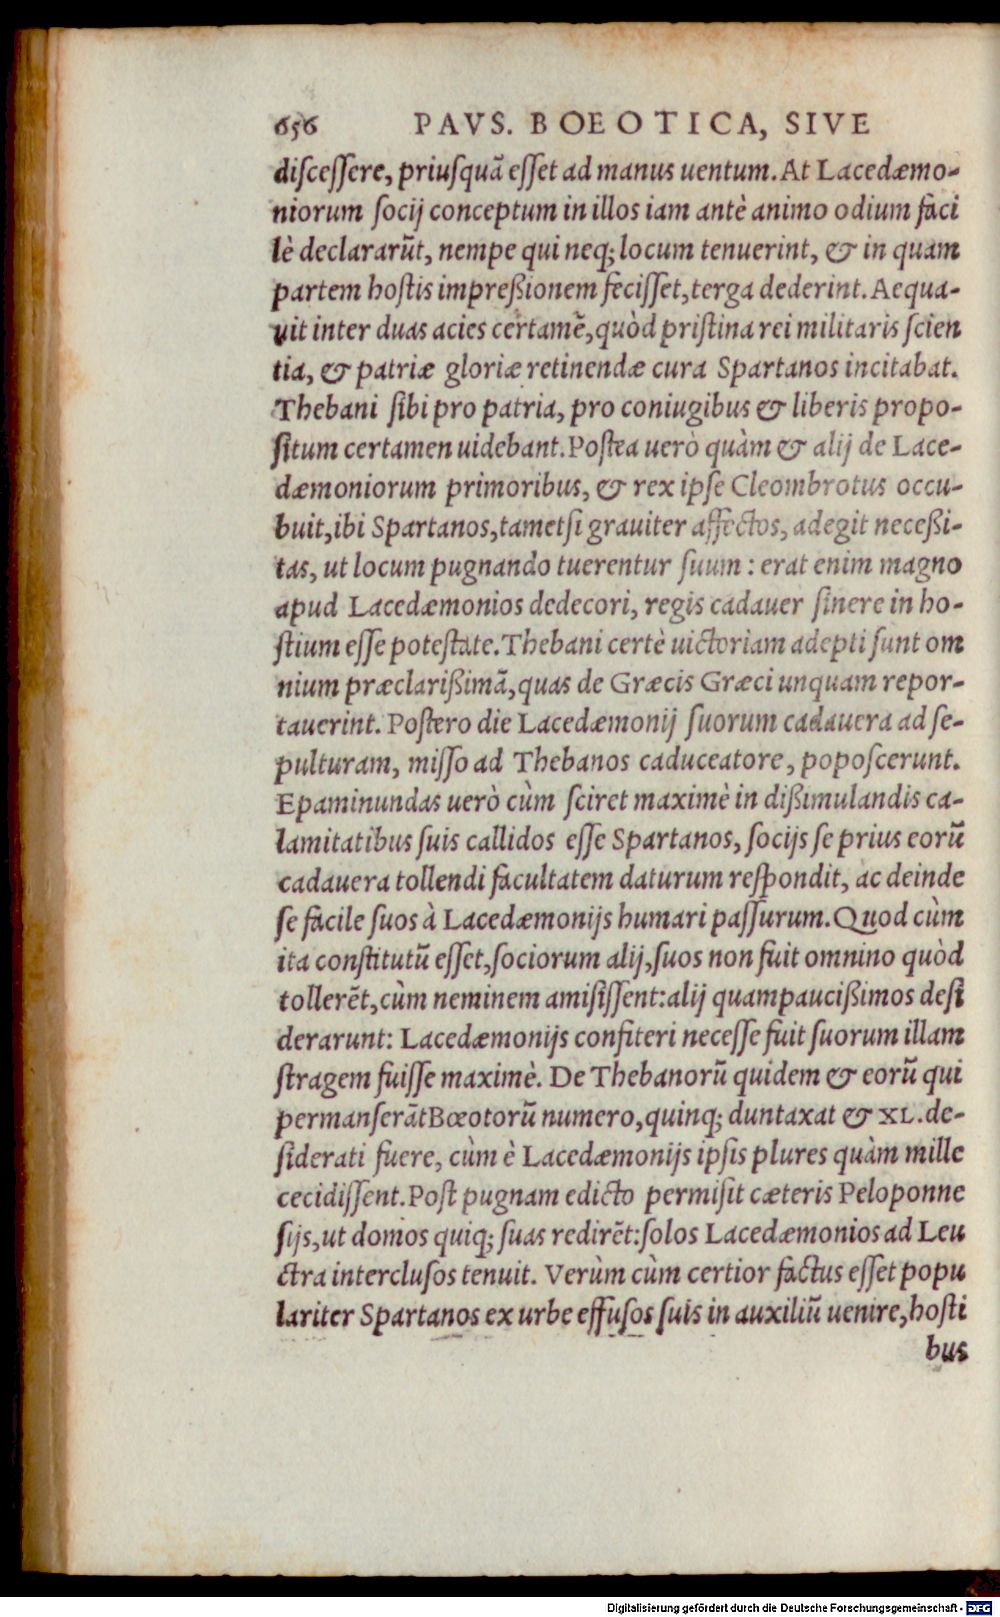 656 PAVS. BOEOTICA, SIVE
discessere, priusquã esset ad manus uentum. At Lacedæmo-
niorum socij conceptum in illos iam antè animo odium faci
lè declararũt, nempe qui neq; locum tenuerint, & in quam
partem hostis impreßionem fecisset, terga dederint. Aequa-
uit inter duas acies certamẽ, quòd pristina rei militaris scien
tia, & patriæ gloriæ retinendæ cura Spartanos incitabat.
Thebani sibi pro patria, pro coniugibus & liberis propo-
situm certamen uidebant. Postea uerò quàm & alij de Lace-
dæmoniorum primoribus, & rex ipse Cleombrotus occu-
buit, ibi Spartanos, tametsi grauiter affectos, adegit neceßi-
tas, ut locum pugnando tuerentur suum : erat enim magno
apud Lacedæmonios dedecori, regis cadauer sinere in ho-
stium esse potestate. Thebani certè uictoriam adepti sunt om
nium præclarißimã, quas de Græcis Græci unquam repor-
tauerint. Postero die Lacedæmonij suorum cadauera ad se-
pulturam, misso ad Thebanos caduceatore, poposcerunt.
Epaminundas uerò cùm sciret maximè in dißimulandis ca-
lamitatibus suis callidos esse Spartanos, socijs se prius eorũ
cadauera tollendi facultatem daturum respondit, ac deinde
se facile suos à Lacedæmonijs humari passurum. Quod cùm
ita constitutũ esset, sociorum alij, suos non fuit omnino quòd
tollerẽt, cùm neminem amisissent: alij quampaucißimos desi
derarunt: Lacedæmonijs confiteri necesse fuit suorum illam
stragem fuisse maximè. De Thebanorũ quidem & eorũ qui
permanserãt Bœotorũ numero, quinq; duntaxat & XL. de-
siderati fuere, cùm è Lacedæmonijs ipsis plures quàm mille
cecidissent. Post pugnam edicto permisit cæteris Peloponne
sijs, ut domos quiq; suas redirẽt: solos Lacedæmonios ad Leu
ctra interclusos tenuit. Verùm cùm certior factus esset popu
lariter Spartanos ex urbe effusos suis in auxiliũ uenire, hosti
bus
Digitalisierung gefördert durch die Deutsche Forschungsgemeinschaft - DFG